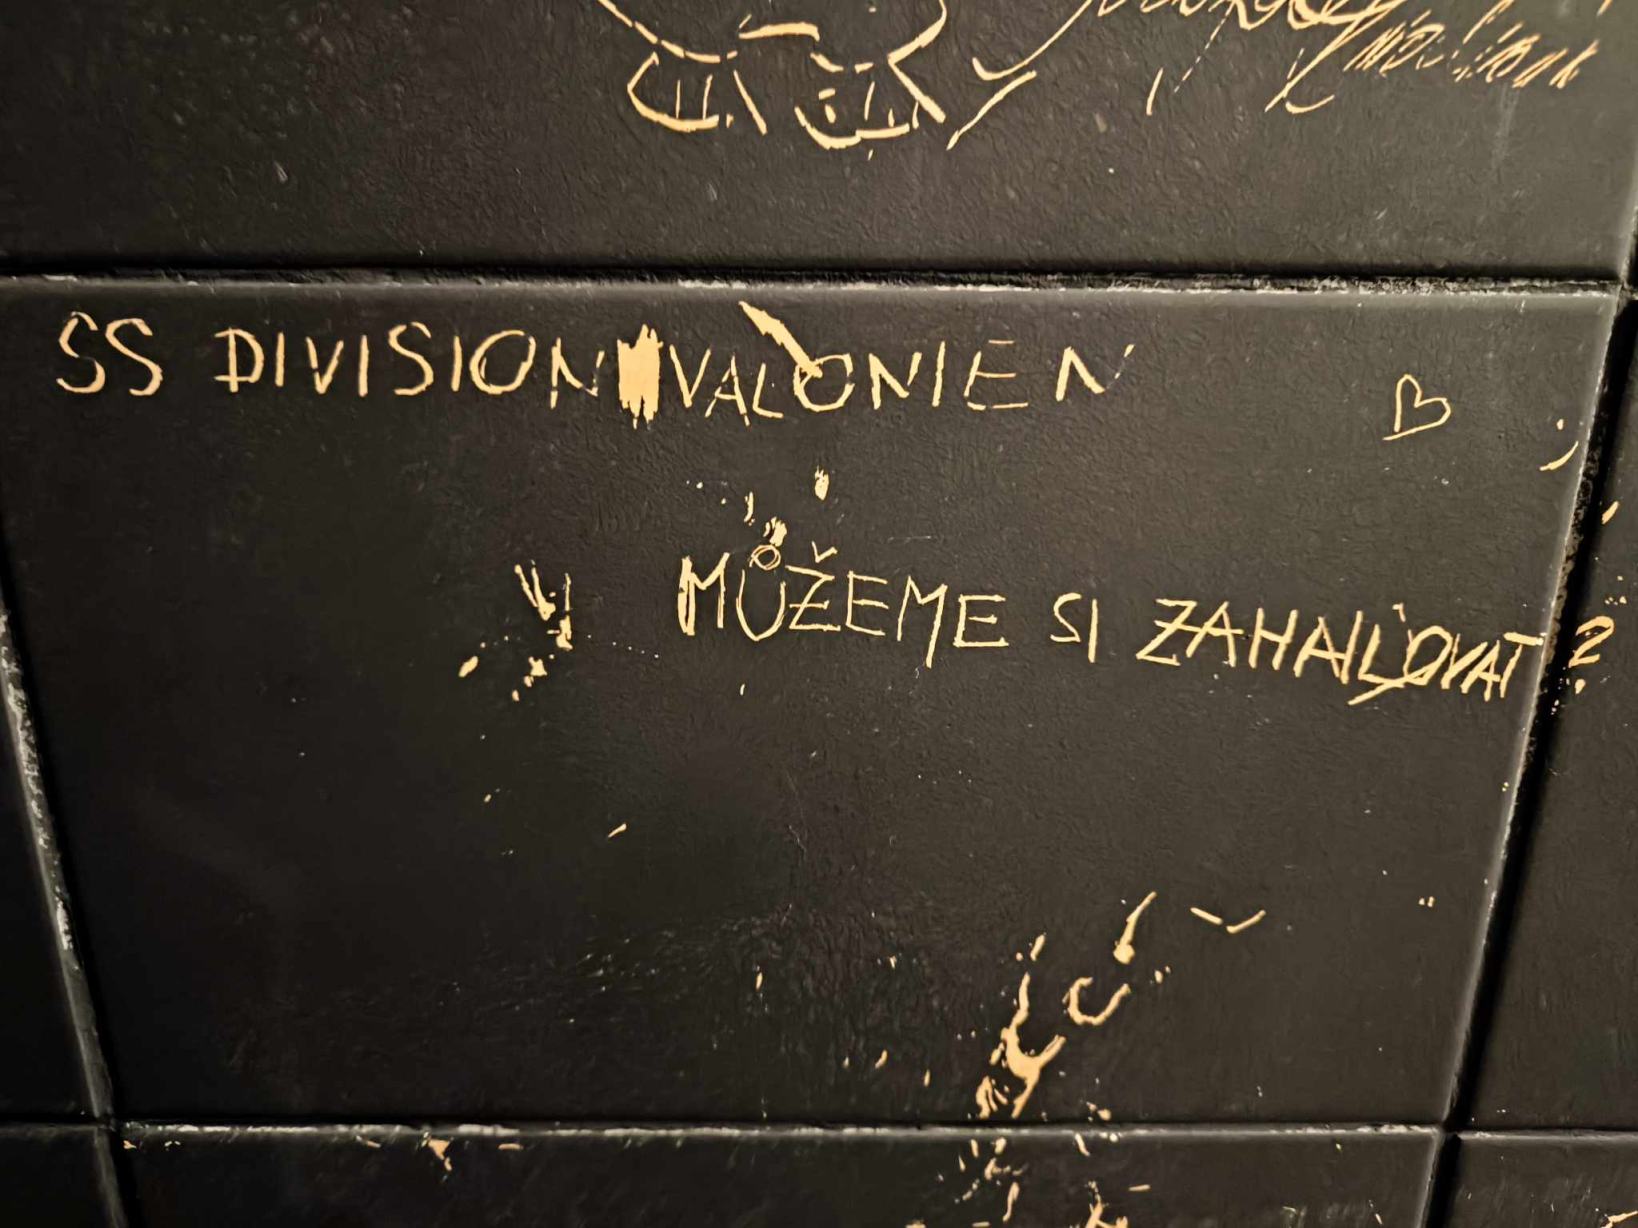 SS DIVISION VALONIEN
MŮŽEME SI ZAHAILOVAT?